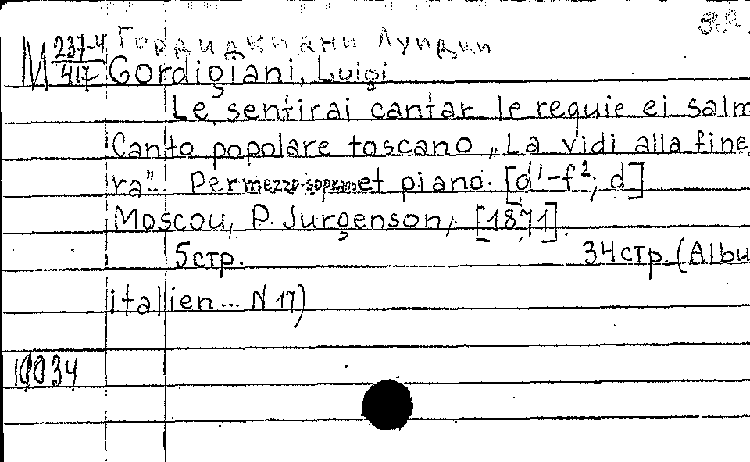 М 237-4/417 Гордиджиани Луиджи
Gordigiani, Luigi
Le sentirai cantar le requie ei salm
Canto popolare toscano „La vidi alla fine
ra". Per mezzo-sopran et piano. [d'-f², d]
Moscou, P. Jurgenson, [1871].
5стр. 34стр. (Albu
italien... N 17)
10034